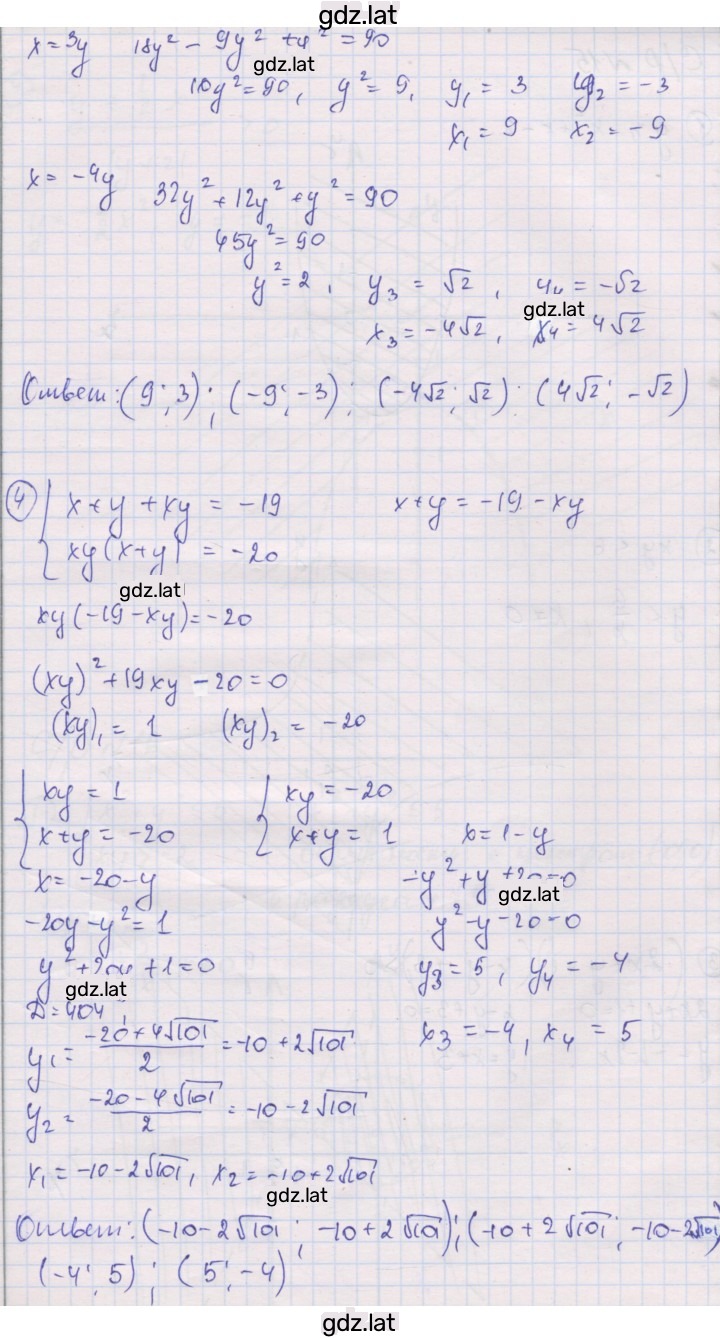 gdz.lat
x = 3y 18y² - 9y² + y² = 90
gdz.lat
10y² = 90, y² = 9, y₁ = 3 y₂ = -3
x₁ = 9 x₂ = -9
x = -4y 32y² + 12y² + y² = 90
45y² = 90
y² = 2, y₃ = √2, y₄ = -√2
gdz.lat
x₃ = -4√2, x₄ = 4√2
Ответ: (9; 3); (-9; -3); (-4√2; √2); (4√2; -√2)
④ { x + y + xy = -19 x + y = -19 - xy
xy(x + y) = -20
gdz.lat
xy(-19 - xy) = -20
(xy)² + 19xy - 20 = 0
(xy)₁ = 1 (xy)₂ = -20
{ xy = 1 { xy = -20
x + y = -20 x + y = 1 x = 1 - y
x = -20 - y -y² + y + 20 = 0
gdz.lat
-20y - y² = 1 y² - y - 20 = 0
y² + 20y + 1 = 0 y₃ = 5, y₄ = -4
gdz.lat
D = 404;
y₁ = (-20 + 4√101)/2 = -10 + 2√101 x₃ = -4, x₄ = 5
y₂ = (-20 - 4√101)/2 = -10 - 2√101
x₁ = -10 - 2√101, x₂ = -10 + 2√101
gdz.lat
Ответ: (-10 - 2√101; -10 + 2√101); (-10 + 2√101; -10 - 2√101)
(-4; 5); (5; -4)
gdz.lat